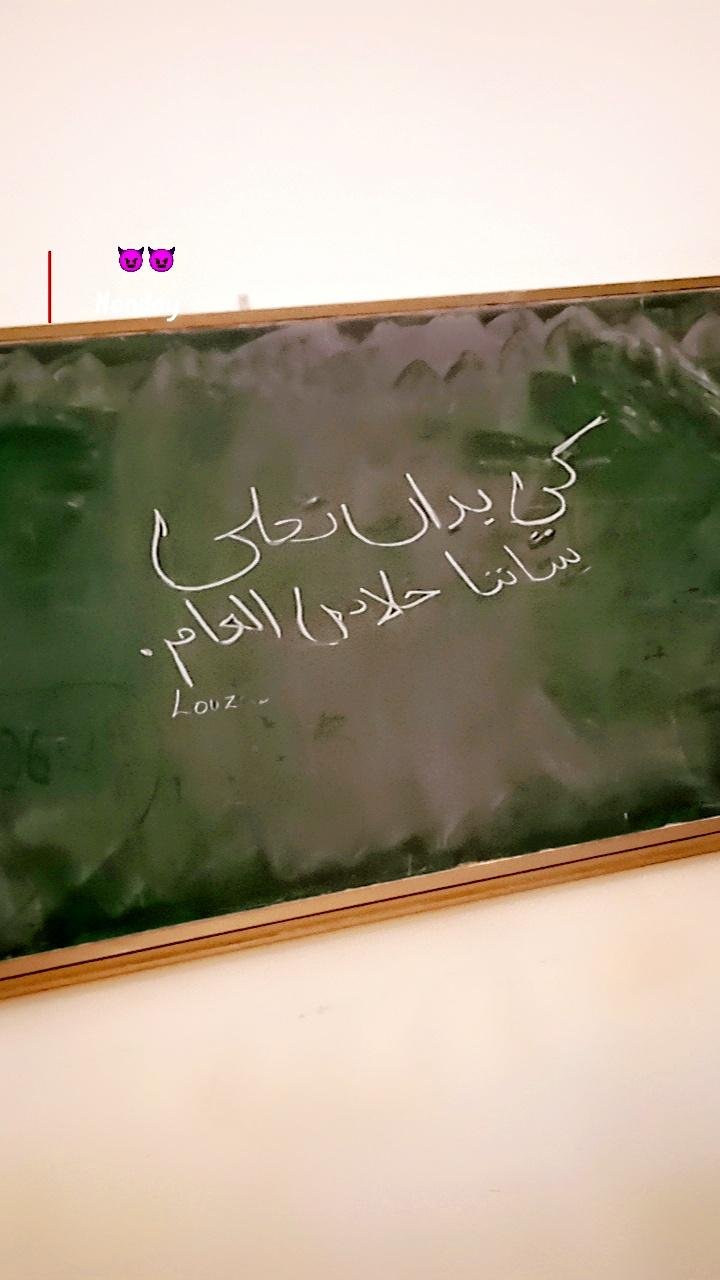 😈😈
Monday
كي بدات تحلى
ساتنا خلاص العام.
Louz..